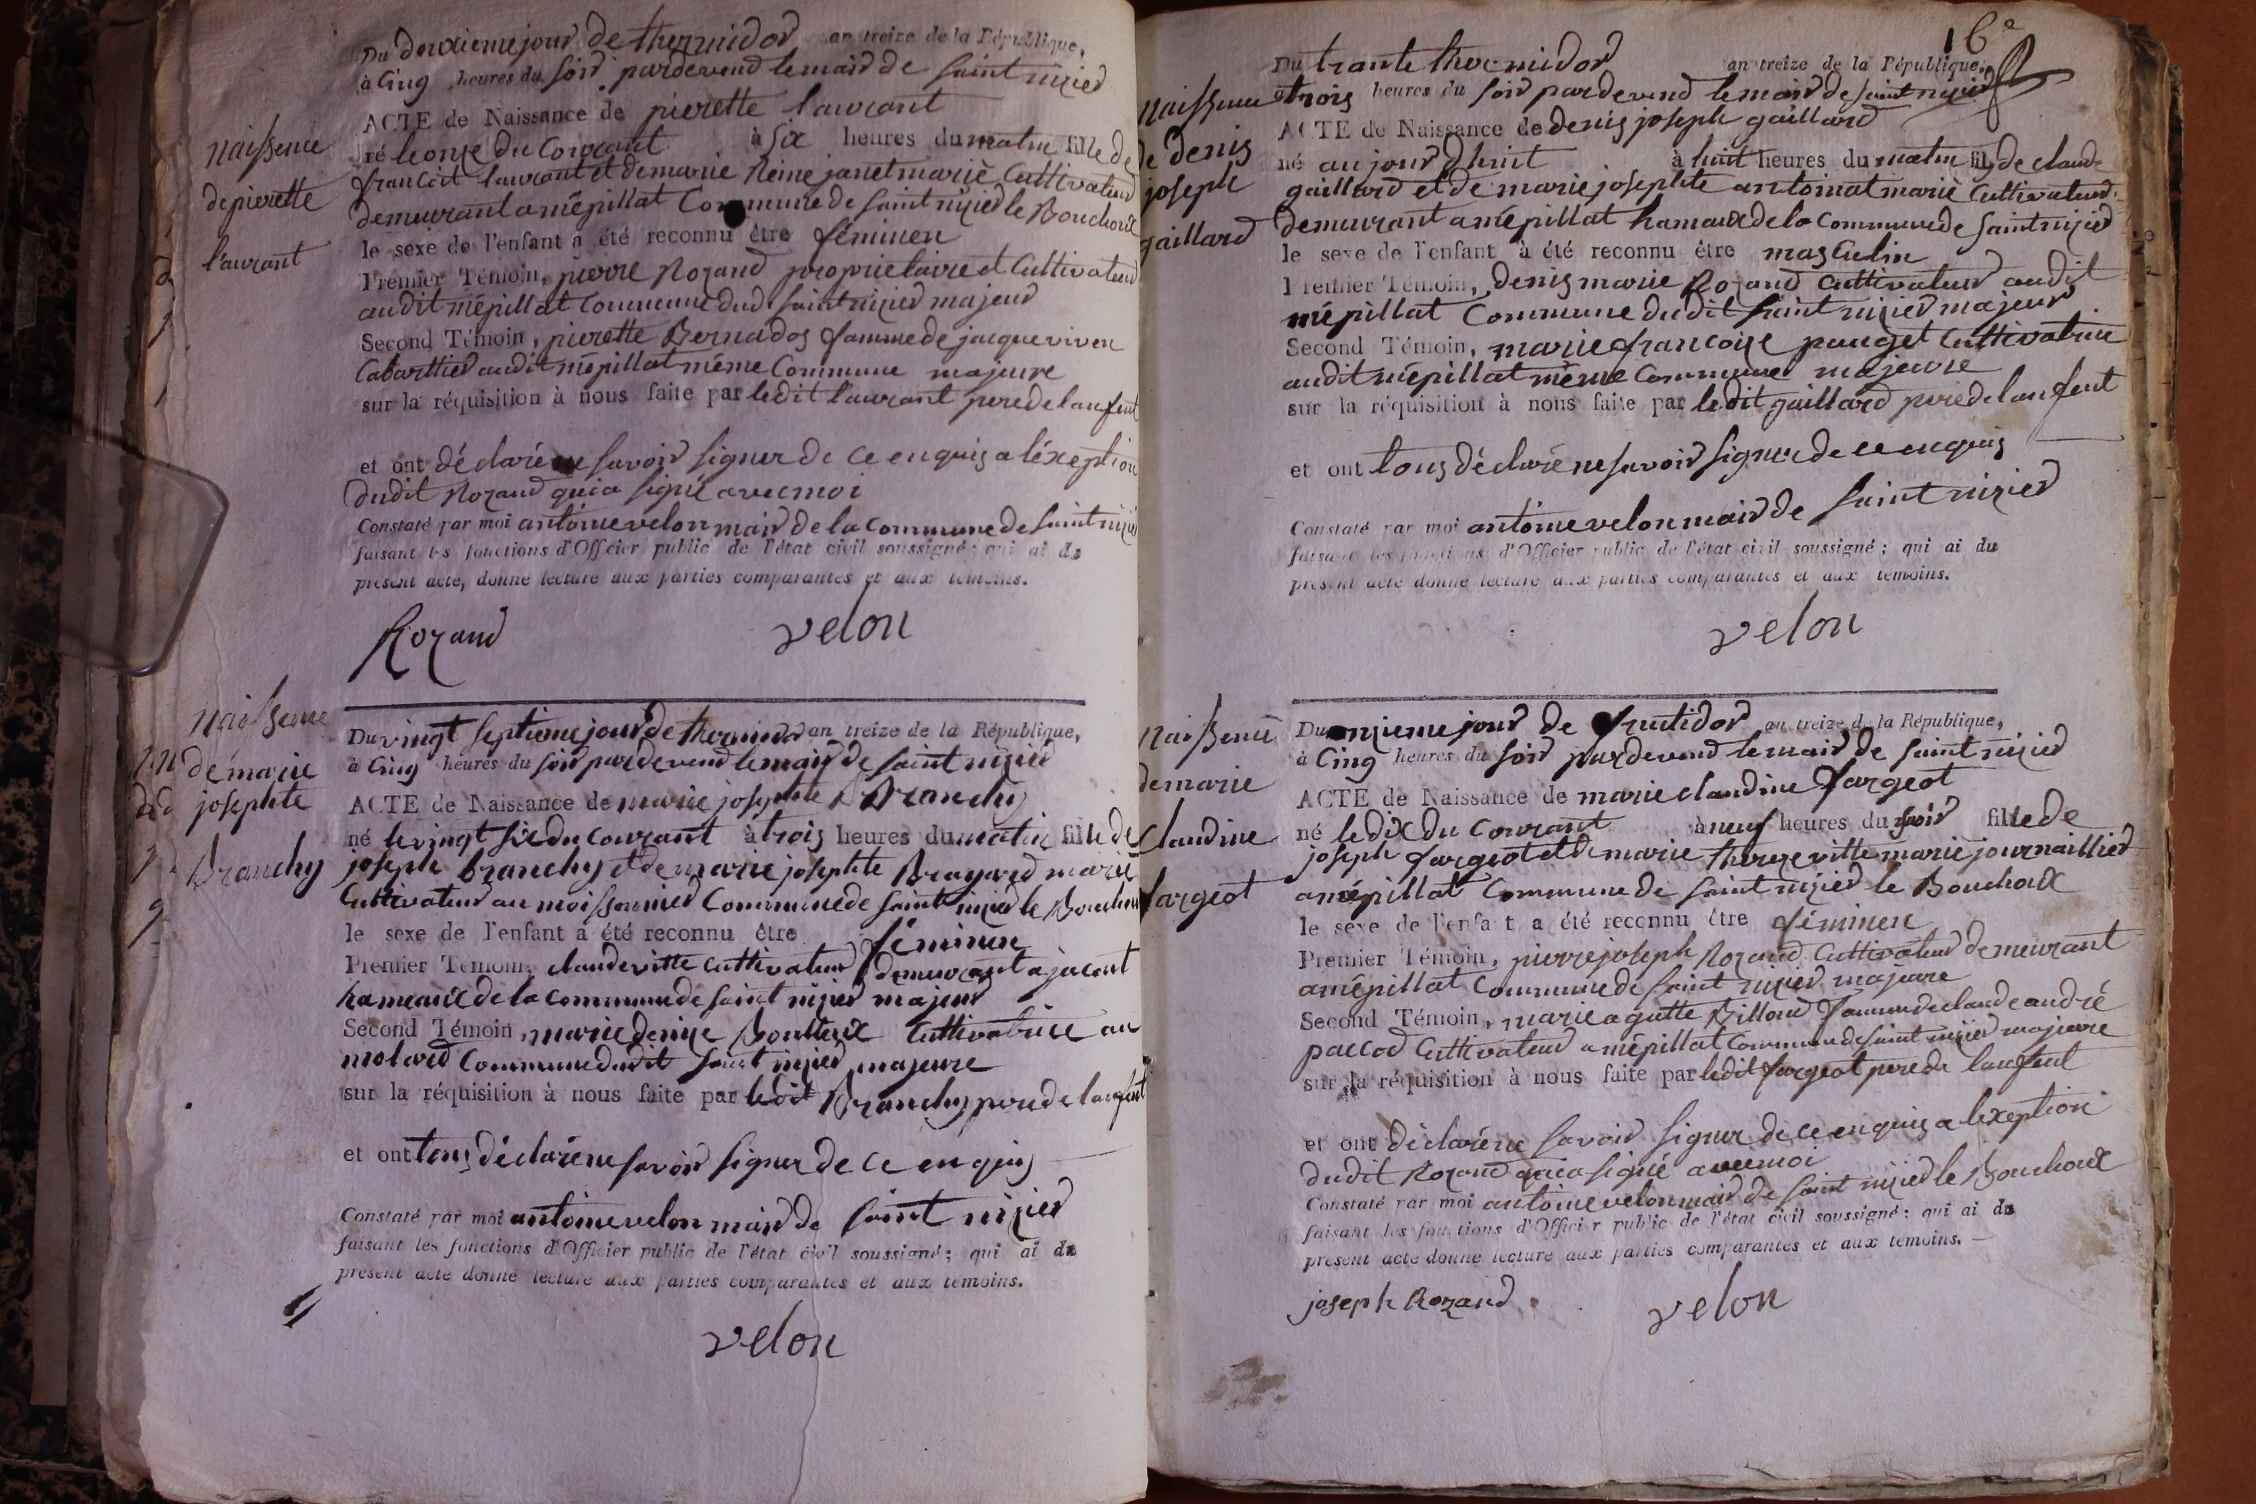 naissence
de pierette
l'aurant
Du douxieme jour de thermidor an treize de la République,
à Cinq heures du soir pardevend le maid de saint nizied
ACTE de Naissance de pierette l'aurant
né le onze du Courant à six heures du matin fille de
francoit l'aurant et de marie Reine janet marié Cultivateud
demeurant a mépillat Commune de saint nizied le Bouchoux
le sexe de l'enfant a été reconnu être féminen
Premier Témoin, pierre Rozand proprietaire et Cultivateud
audit mépillat Commune dud. saint nizied majeud
Second Témoin, pierette Bernados famme de jacque viven
Cabarttied audit mépillat méme Commune majeure
sur la réquisition à nous faite par ledit l'aurant pere de lanfent
et ont déclaré ne savoir signer de ce enquis a léxeption
dudit Rozand qui a signé avec moi
Constaté par moi antoine velon maid de la Commune de saint nizied
faisant les fonctions d'Officier public de l'état civil soussigné; qui ai du
présent acte, donné lecture aux parties comparantes et aux témoins.
Rozand velon
naissence
de marie
josephte
Branchy
Du vingt septieme jour de thermidod an treize de la République,
à Cinq heures du soir pardevend le maid de saint nizied
ACTE de Naissance de marie josephte Branchy
né le vingt six du Courant à trois heures du matin fille de
joseph branchy et de marie josephte Brayard marié
Cultivateud au moissonnied Commune de saint nizied le Bouchoux
le sexe de l'enfant a été reconnu être féminen
Premier Témoin, claude vitte cultivateud demeurant a jacent
hameaux de la commune de saint nizied majeud
Second Témoin, marie denise Bontteux Cultivatrice au
molard Commune dudit saint nizied majeure
sur la réquisition à nous faite par ledit Branchy pere de lanfent
et ont tous déclaré ne savoir signer de ce enquis
Constaté par moi antoine velon maid de saint nizied
faisant les fonctions d'Officier public de l'état civil soussigné; qui ai du
présent acte donné lecture aux parties comparantes et aux témoins.
velon
16e
naissence
de denis
joseph
gaillard
Du trante thermidod an treize de la République,
à trois heures du soir pardevend le maid de saint nizied
ACTE de Naissance de denis joseph gaillard
né aujourdhuit à huit heures du matin fils de claude
gaillard et de marie josephte antoinat marié Cultivateud
demeurant a mépillat hameaux de la commune de saint nizied
le sexe de l'enfant à été reconnu être masculin
Premier Témoin, denis marie Rozand Cultivateud audit
mépillat Commune dudit saint nizied majeur
Second Témoin, marie francoise pauget Cultivatrice
audit mépillat méme Commune majeure
sur la réquisition à nous faite par ledit gaillard pere de lanfent
et ont tous déclaré ne savoir signer de ce enquis
Constaté par moi antoine velon maid de saint nizied
faisant les fonctions d'Officier public de l'état civil soussigné; qui ai du
présent acte donné lecture aux parties comparantes et aux témoins.
velon
naissence
de marie
claudine
fargeot
Du onzieme jour de fruttidor an treize de la République,
à Cinq heures du soir pardevend le maid de saint nizied
ACTE de Naissance de marie claudine fargeot
né le dix du Courant à neuf heures du soir fille de
joseph fargeot et de marie thereze vitte marié journaillied
a mépillat Commune de saint nizied le Bouchoux
le sexe de l'enfant a été reconnu être féminen
Premier Témoin, pierre joseph Rozand Cultivateud demeurant
a mépillat Commune de saint nizied majeure
Second Témoin, marie agatte Billoud famme de claude andré
paccod Cultivateud a mépillat Commune de saint nizied majeure
sur la réquisition à nous faite par ledit fargeot pere de lanfent
et ont déclaré ne savoir signer de ce enquis a lexeption
dudit Rozand qui a signé avec moi
Constaté par moi antoine velon maid de saint nizied le Bouchoux
faisant les fonctions d'Officier public de l'état civil soussigné; qui ai du
présent acte donné lecture aux parties comparantes et aux témoins.
joseph Rozand velon